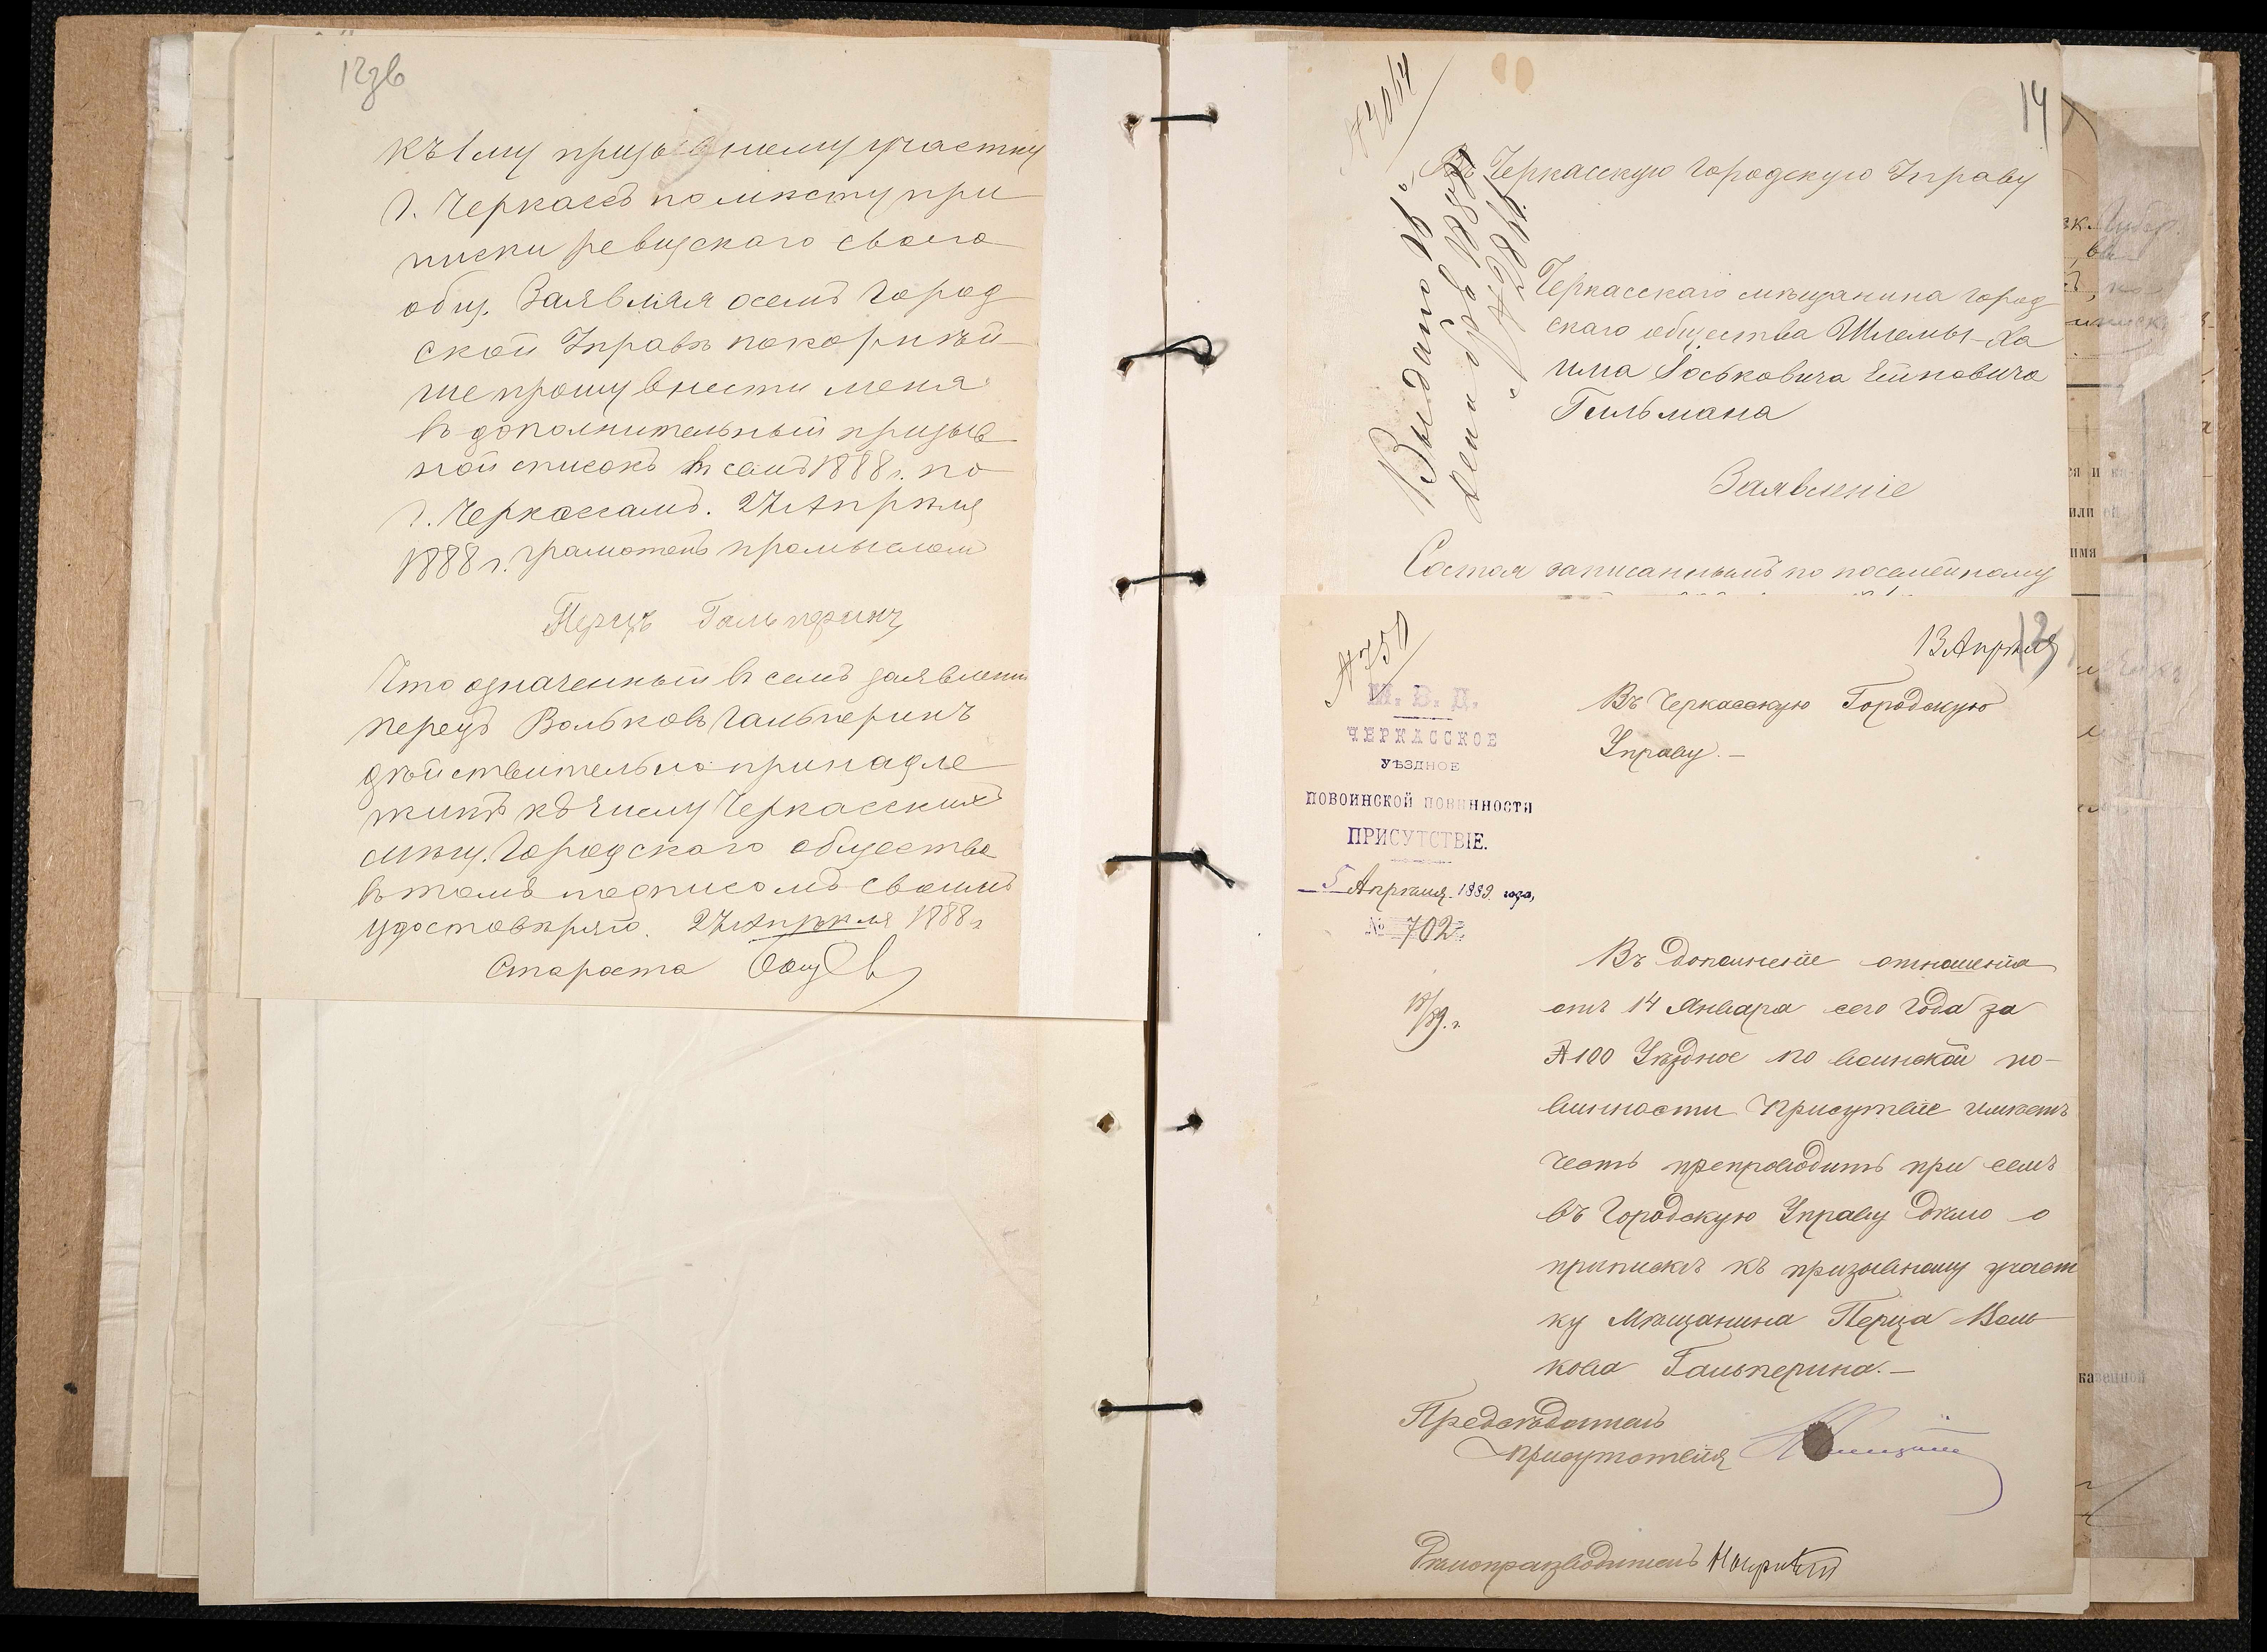 12зв
къ 1му призывному участку
г. Черкассъ по мѣсту при
писки ревизскаго своего
общ. Заявляя осемъ Город
ской Управѣ покорнѣй
ше прошу внести меня
въ дополнительный призыв
ной списокъ въ семъ 1888 г. по
г. Черкассамъ. 27 Апрѣля
1888 г. грамотенъ промысломъ
Перецъ Гальперинъ
Что означенный въ семъ заявленіи
Перецъ Вольковъ Гальперинъ
дѣйствительно принадле
житъ къ числу Черкасскихъ
мѣщ. Городскаго общества
въ томъ подписомъ своимъ
удостовѣряю. 27 Апрѣля 1888 г
Староста
14
Въ Черкасскую Городскую Управу
Черкасскаго мѣщанина город
скаго общества Шлемы-Ха
има Іоськовича
Гильмана
Заявленіе
Состоя записаннымъ по посемейному
13 Апрѣля
№ 750
М. В. Д.
ЧЕРКАССКОЕ
УѢЗДНОЕ
ПОВОИНСКОЙ ПОВИННОСТИ
ПРИСУТСТВІЕ.
5 Апрѣля 1889 года,
№ 702
Въ Черкасскую Городскую
Управу. —
Въ дополненіе отношенія
отъ 14 Января сего года за
№ 100 Уѣздное по воинской по-
винности Присутствіе имѣетъ
честь препроводить при семъ
въ Городскую Управу дѣло о
припискѣ къ призывному участ
ку Мѣщанина Перца Воль
кова Гальперина. —
Предсѣдатель
Присутствія
Дѣлопроизводитель